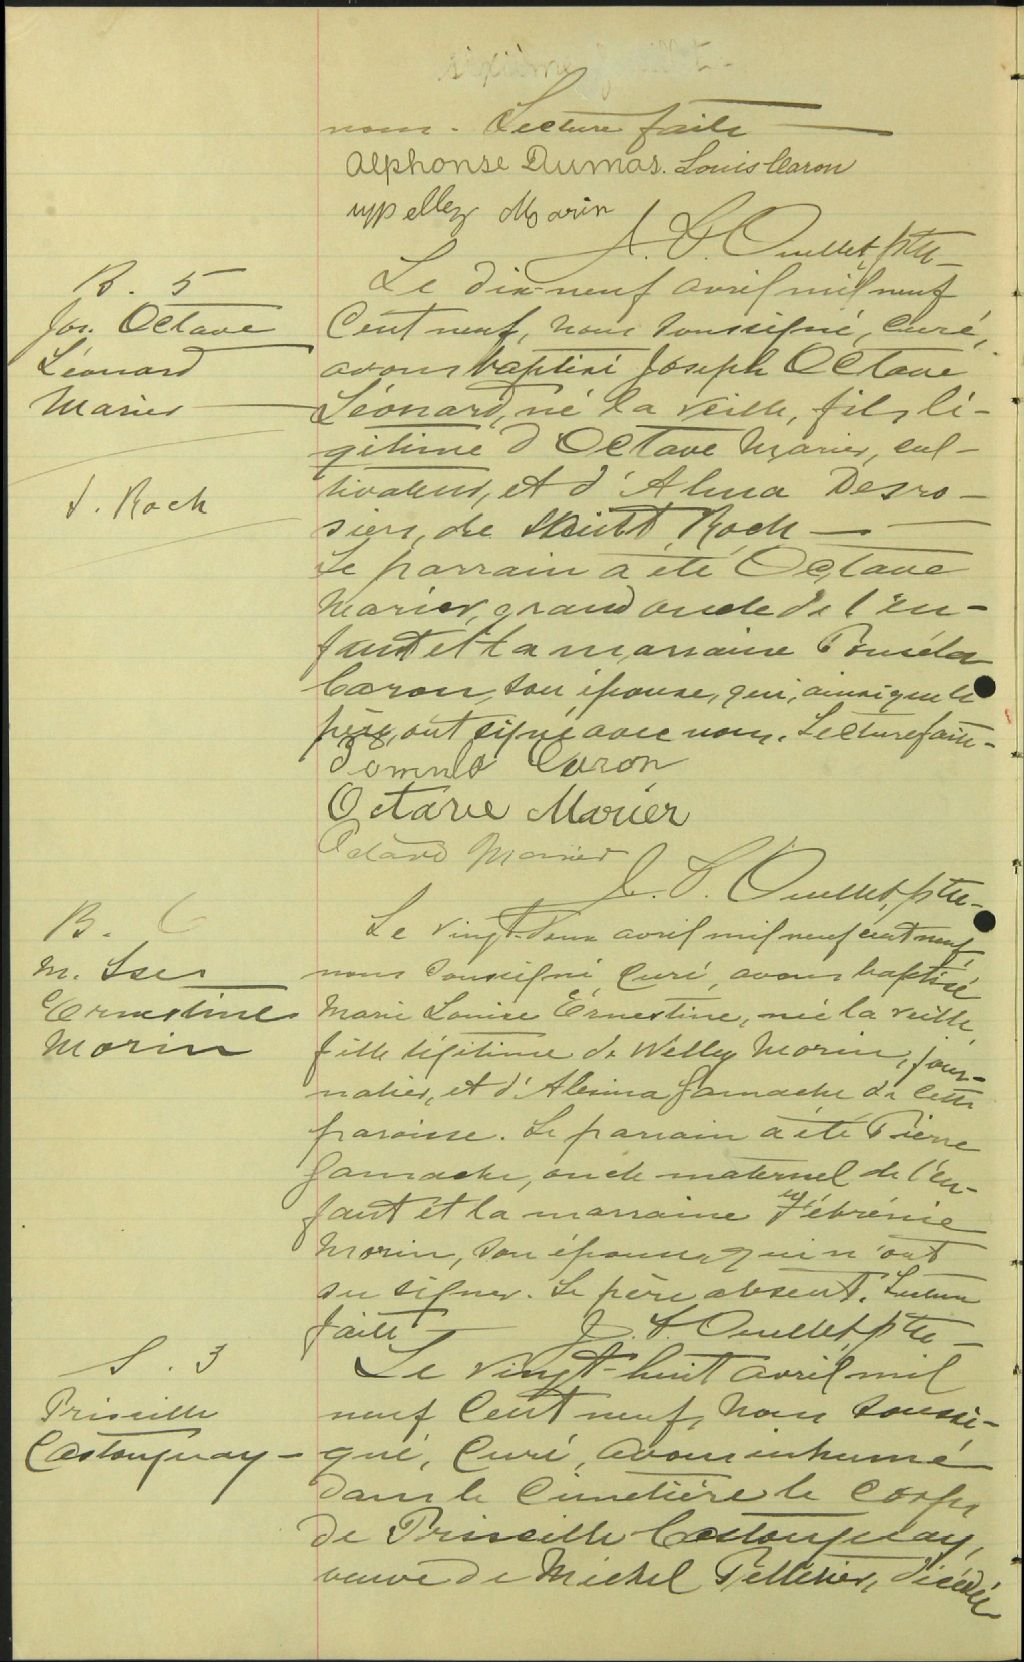 nous. Lecture faite
Alphonse Dumas. Louis Caron
Morin
J. S. Ouellet, ptre
B. 5
Jos. Octave
Léonard
Marier
S. Roch
Le dix-neuf avril mil neuf
cent neuf, nous soussigné, curé,
avons baptisé Joseph Octave
Léonard, né la veille, fils lé-
gitime d'Octave Marier, cul-
tivateur, et d'Alma Desro-
siers, de Saint Roch
Le parrain a été Octave
Marier, grand oncle de l'en-
fant et la marraine
Caron, son épouse, qui, ainsi que le
père, ont signé avec nous. Lecture faite.
Caron
Octave Marier
Octave Marier
J. S. Ouellet, ptre
B. 6
M. Lse
Ernestine
Morin
Le vingt-deux avril mil neuf cent neuf,
nous soussigné, curé, avons baptisé
Marie Louise Ernestine, née la veille,
fille légitime de Welley Morin, jour-
nalier, et d'Alexina Gamache de cette
paroisse. Le parrain a été Pierre
Gamache, oncle maternel de l'en-
fant et la marraine
Morin, son épouse, qui n'ont
su signer. Le père absent. Lecture
faite J. S. Ouellet, ptre
S. 3
Priscille
Castonguay
Le vingt-huit avril mil
neuf cent neuf, nous soussi-
gné, curé, avons inhumé
dans le cimetière le corps
de Priscille Castonguay,
veuve de Michel Pelletier, décédée